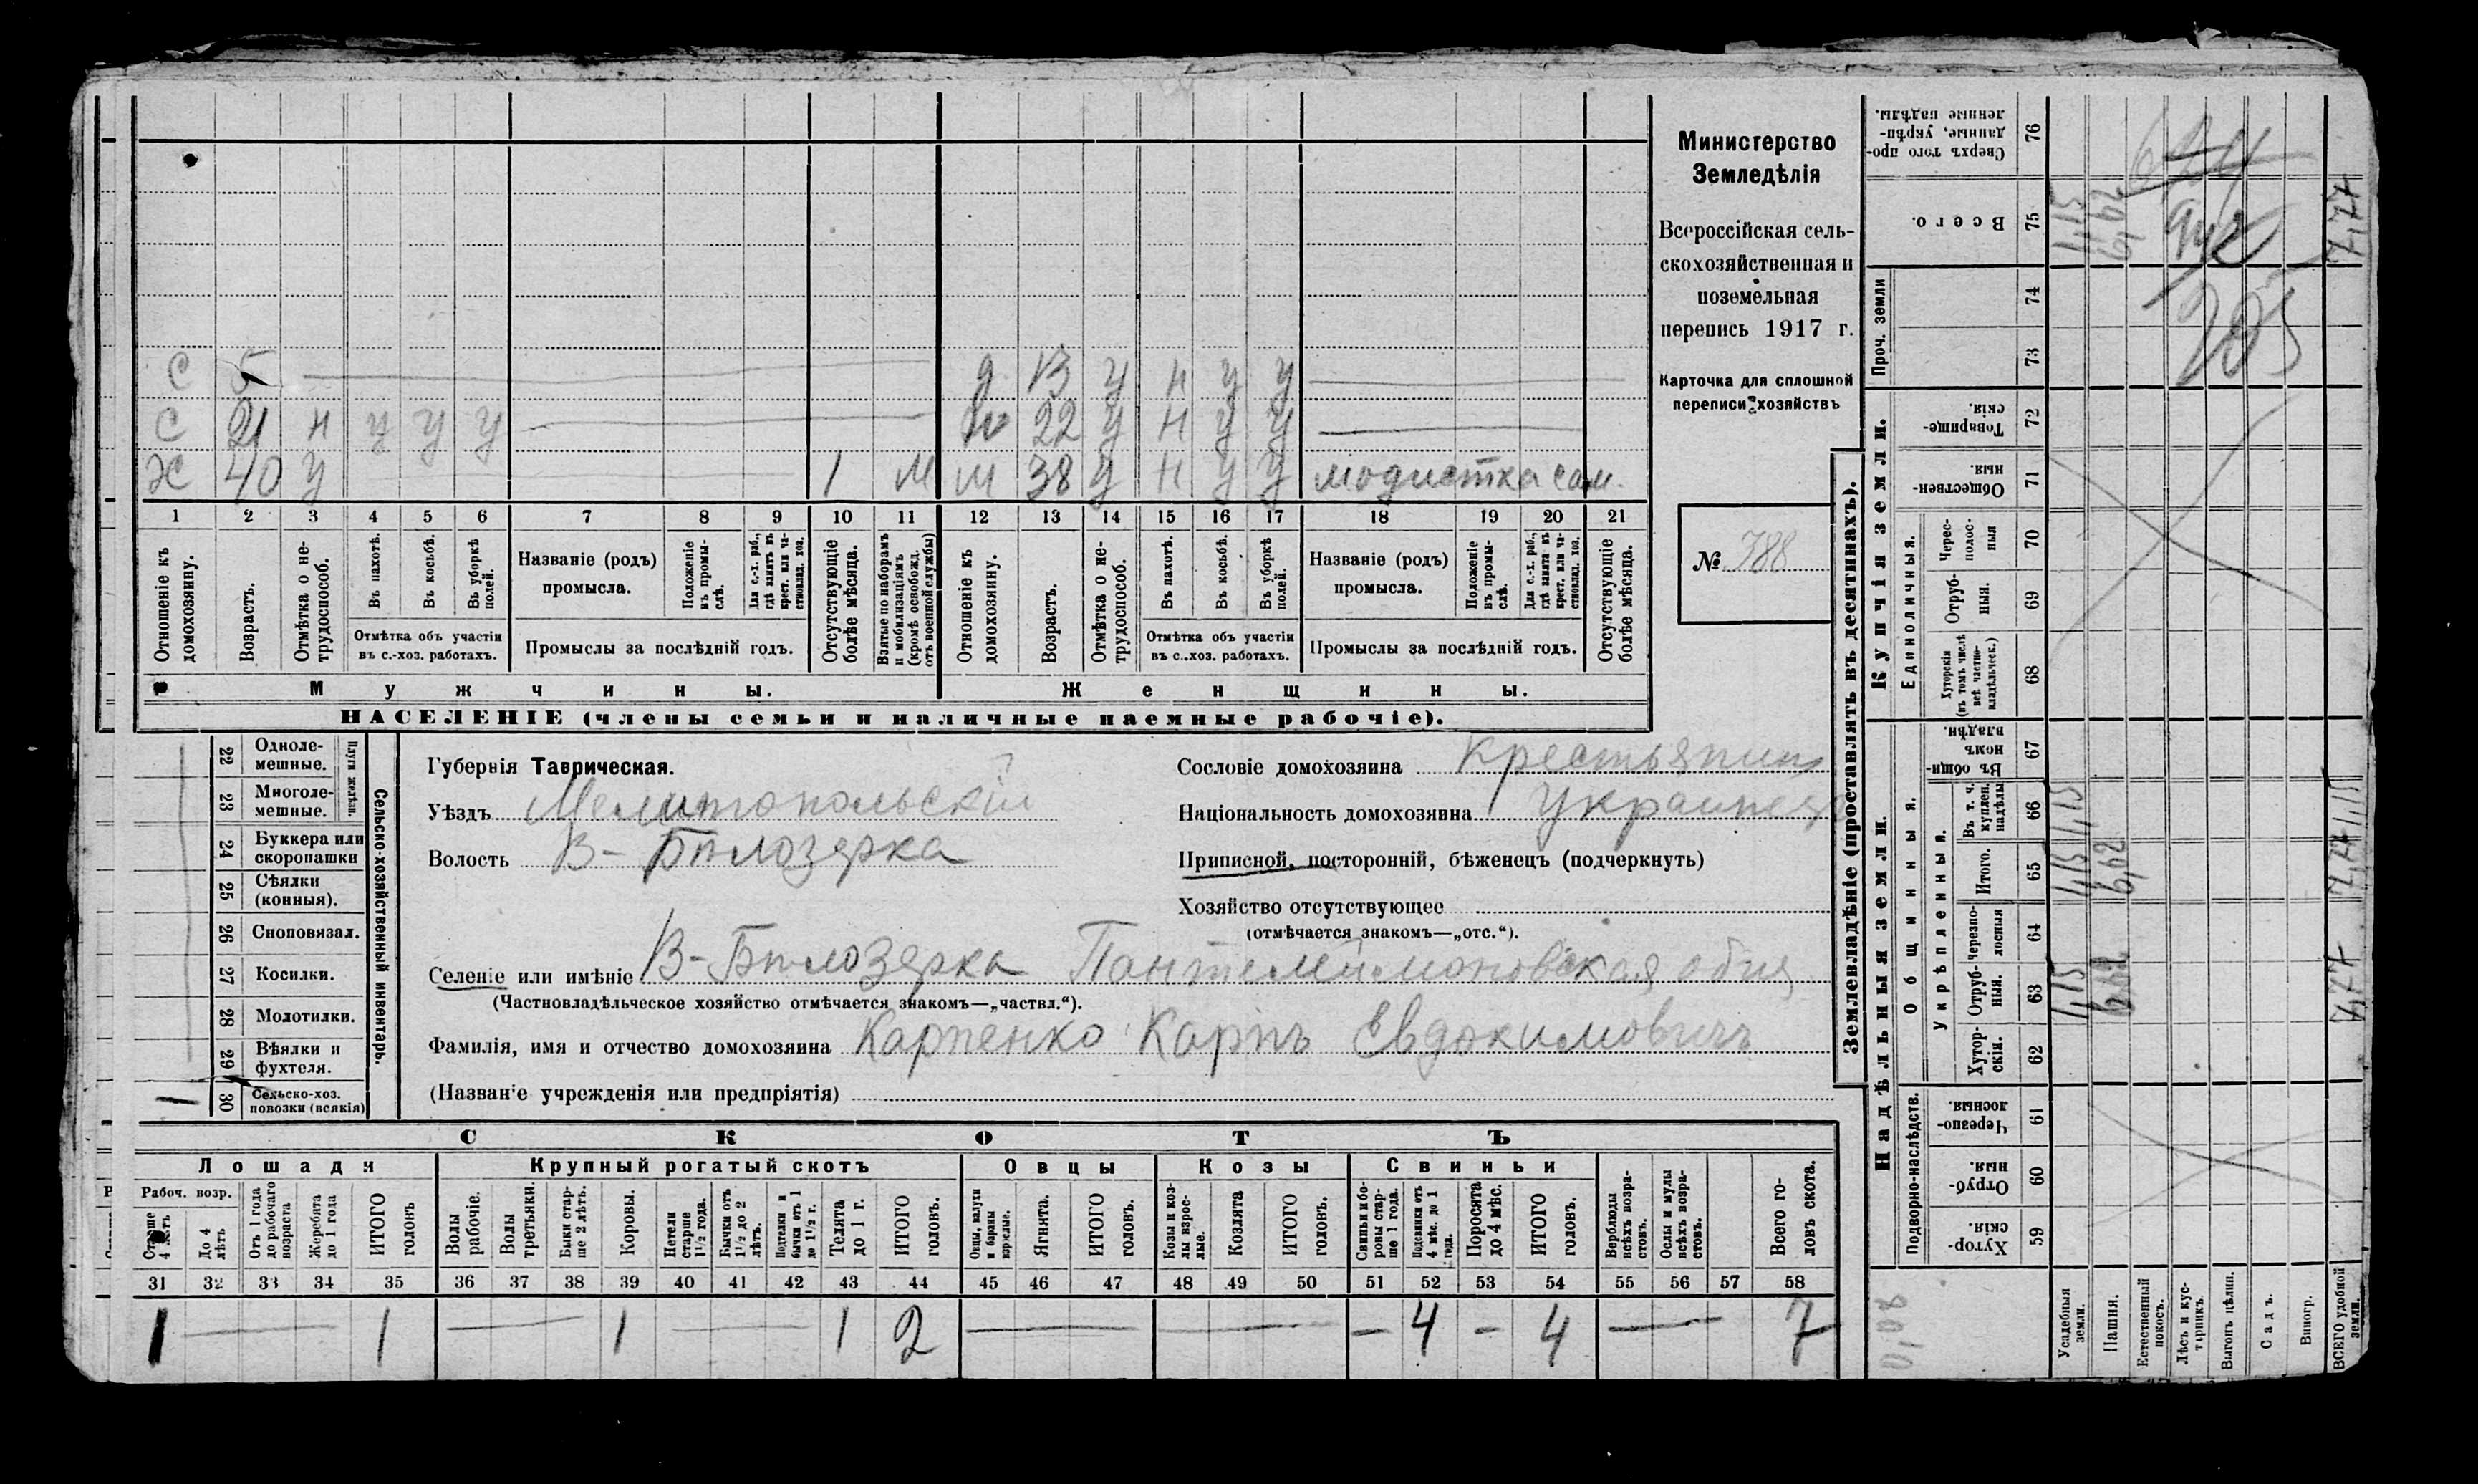 С 5 — д 13 у н у у —
С 21 н у у у — 22 у н у у —
Х 40 у 1 М М 38 у н у у модистка сам.
1 2 3 4 5 6 7 8 9 10 11 12 13 14 15 16 17 18 19 20 21
Отношеніе къ домохозяину.
Возрастъ.
Отмѣтка о нетрудоспособ.
Въ пахотѣ.
Въ косьбѣ.
Въ уборкѣ полей.
Отмѣтка объ участіи
въ с.-хоз. работахъ.
Названіе (родъ)
промысла.
Положеніе въ промыслѣ.
Для с.-х. раб., гдѣ занятъ въ крест. или частновлад. хоз.
Промыслы за послѣдній годъ.
Отсутствующіе болѣе мѣсяца.
Взятые по наборамъ и мобилизаціямъ (кромѣ освобожд. отъ военной службы)
Отношеніе къ домохозяину.
Возрастъ.
Отмѣтка о нетрудоспособ.
Въ пахотѣ.
Въ косьбѣ.
Въ уборкѣ полей.
Отмѣтка объ участіи
въ с.-хоз. работахъ.
Названіе (родъ)
промысла.
Положеніе въ промыслѣ.
Для с.-х. раб., гдѣ занята въ крест. или частновлад. хоз.
Промыслы за послѣдній годъ.
Отсутствующіе болѣе мѣсяца.
Мужчины. Женщины.
НАСЕЛЕНІЕ (члены семьи и наличные наемные рабочіе).
Министерство
Земледѣлія
Всероссійская сель-
скохозяйственная и
поземельная
перепись 1917 г.
Карточка для сплошной
переписи хозяйствъ
№ 788
Сельско-хозяйственный инвентарь.
Плуги желѣзн.
22 Одноле-
мешные.
23 Многоле-
мешные.
24 Буккера или
скоропашки
25 Сѣялки
(конныя).
26 Сноповязал.
27 Косилки.
28 Молотилки.
29 Вѣялки и
фухтеля.
1 30 Сельско-хоз.
повозки (всякія)
Губернія Таврическая.
Уѣздъ Мелитопольскій
Волость В-Бѣлозерка
Сословіе домохозяина Крестьянинъ
Національность домохозяина Украинецъ
Приписной, посторонній, бѣженецъ (подчеркнуть)
Хозяйство отсутствующее
(отмѣчается знакомъ—„отс.“).
Селеніе или имѣніе В-Бѣлозерка Пантелеймоновская общ
(Частновладѣльческое хозяйство отмѣчается знакомъ—„частвл.“).
Фамилія, имя и отчество домохозяина Карпенко Карпъ Евдокимовичъ
(Названіе учрежденія или предпріятія)
СКОТЪ
Лошади Крупный рогатый скотъ Овцы Козы Свиньи
Рабоч. возр.
Старше 4 лѣтъ
До 4 лѣтъ
Отъ 1 года до рабочаго возраста
Жеребята до 1 года
ИТОГО головъ
Волы рабочіе.
Волы третьяки.
Быки старше 2 лѣтъ.
Коровы.
Нетели старше 1½ года.
Бычки отъ 1½ до 2 лѣтъ.
Подтелки и бычки отъ 1 до 1½ г.
Телята до 1 г.
ИТОГО головъ.
Овцы, валухи и бараны взрослые.
Ягнята.
ИТОГО головъ.
Козы и козлы взрослые.
Козлята
ИТОГО головъ.
Свиньи и боровы старше 1 года.
Подсвинки отъ 4 мѣс. до 1 года.
Поросята до 4 мѣс.
ИТОГО головъ.
Верблюды всѣхъ возрастовъ.
Ослы и мулы всѣхъ возрастовъ.
Всего головъ скота.
31 32 33 34 35 36 37 38 39 40 41 42 43 44 45 46 47 48 49 50 51 52 53 54 55 56 57 58
1 — 1 — 1 — 1 2 — — — 4 — 4 — 7
Землевладѣніе (проставлять въ десятинахъ).
Надѣльныя земли. Купчія земли. Проч. земли
Подворно-наслѣдств.
Общинныя.
Укрѣпленныя.
Единоличныя.
Хуторскія. 59
Отрубныя. 60
Черезполосныя. 61
Хуторскія. 62
Отрубныя. 63
Черезполосныя 64
Итого. 65
Въ т. ч. куплен. надѣлы 66
Въ общинномъ владѣн. 67
Хуторскія (въ томъ числѣ всѣ частновладѣльческ.) 68
Отрубныя. 69
Черезполосныя 70
Общественныя. 71
Товарищескія. 72
73
74
Всего. 75
Сверхъ того проданные, укрѣпленные надѣлы. 76
Усадебныя земли. 1,15 1,15 1,15 1,15
Пашня. 6,62 6,62
Естественный покосъ.
Лѣсъ и кустарникъ.
Выгонъ цѣлин.
Садъ.
Виногр.
ВСЕГО удобной земли. 7,77 7,77 1,15 7,77
0,08